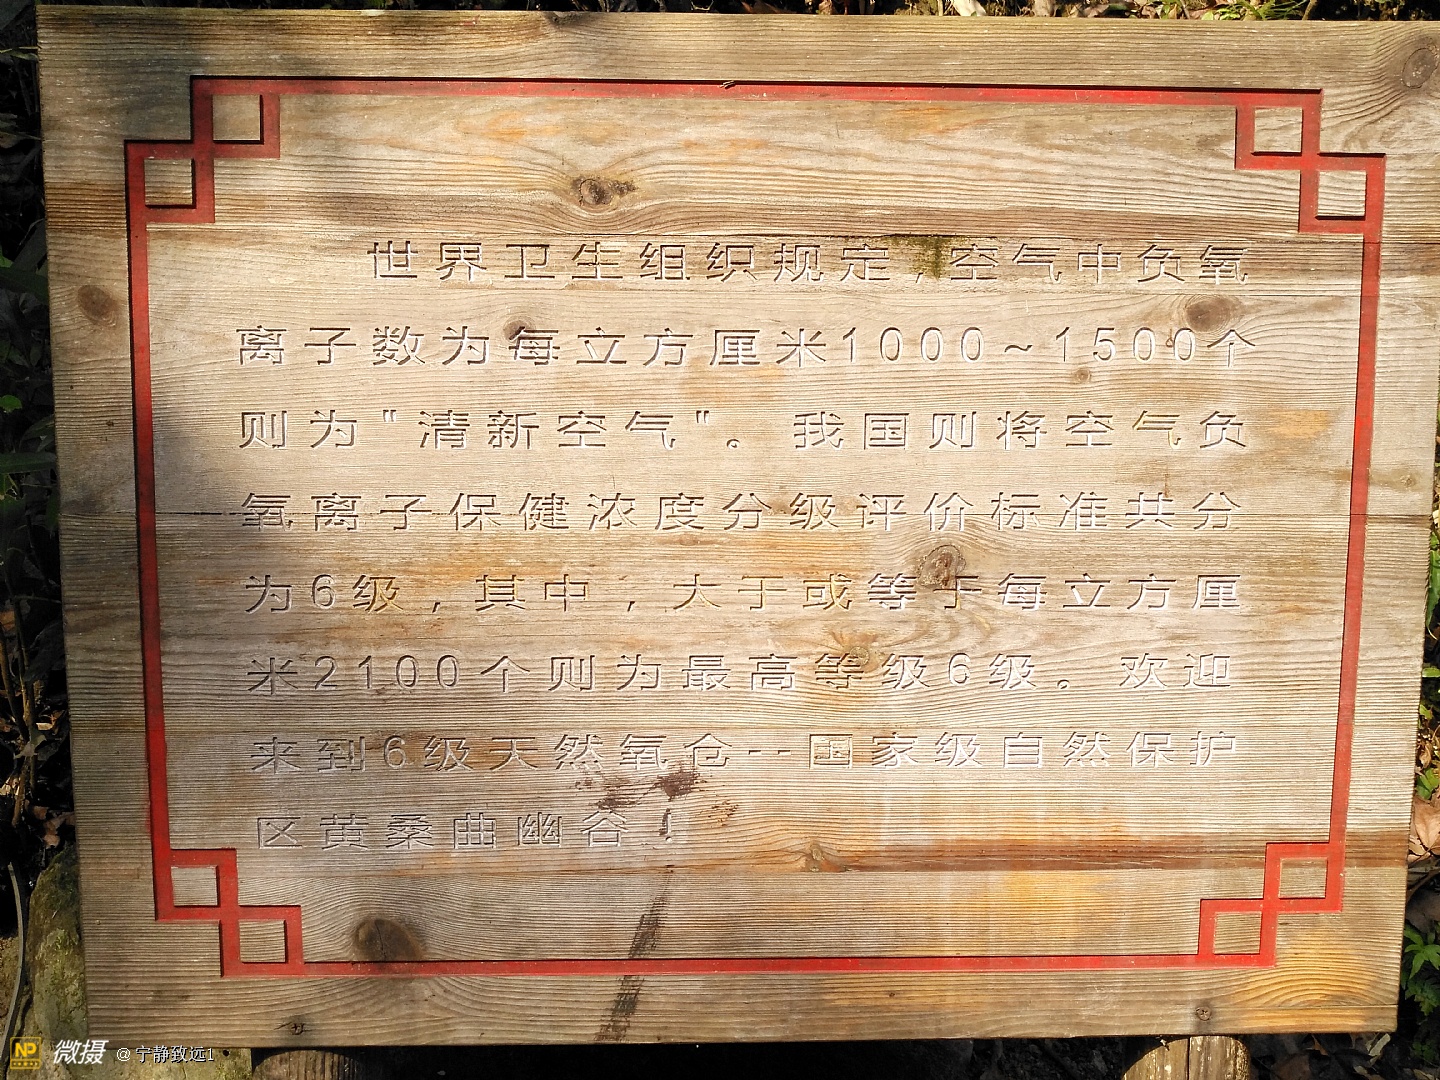 世界卫生组织规定,空气中负氧
离子数为每立方厘米1000~1500个
则为"清新空气"。我国则将空气负
氧离子保健浓度分级评价标准共分
为6级,其中,大于或等于每立方厘
米2100个则为最高等级6级。欢迎
来到6级天然氧仓--国家级自然保护
区黄桑曲幽谷!
NP 微摄 @宁静致远1